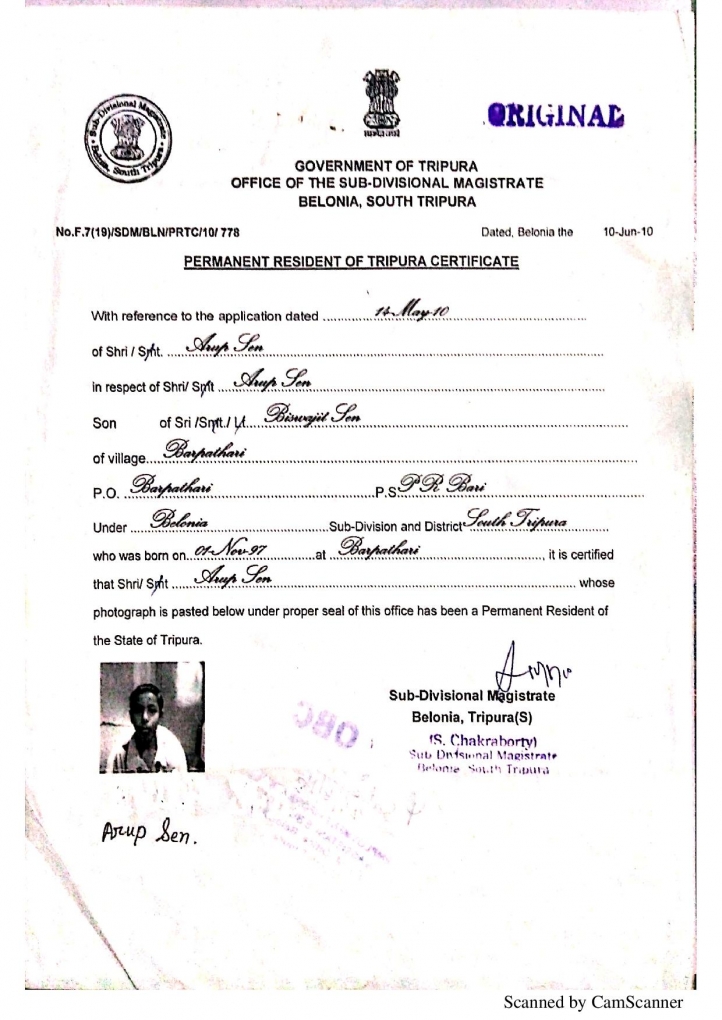 Sub-Divisional Magistrate
Belonia, South Tripura
ORIGINAL
GOVERNMENT OF TRIPURA
OFFICE OF THE SUB-DIVISIONAL MAGISTRATE
BELONIA, SOUTH TRIPURA
No.F.7(19)/SDM/BLN/PRTC/10/ 778 Dated, Belonia the 10-Jun-10
PERMANENT RESIDENT OF TRIPURA CERTIFICATE
With reference to the application dated 14-May-10
of Shri / Smt. Arup Sen
in respect of Shri/ Smt Arup Sen
Son of Sri /Smt./ Lt. Biswajit Sen
of village Barpathari
P.O. Barpathari P.S P R Bari
Under Belonia Sub-Division and District South Tripura
who was born on 01-Nov-97 at Barpathari, it is certified
that Shri/ Smt Arup Sen whose
photograph is pasted below under proper seal of this office has been a Permanent Resident of
the State of Tripura.
Sub-Divisional Magistrate
Belonia, Tripura(S)
(S. Chakraborty)
Sub Divisional Magistrate
Belonia South Tripura
OBC
Arup Sen.
Scanned by CamScanner